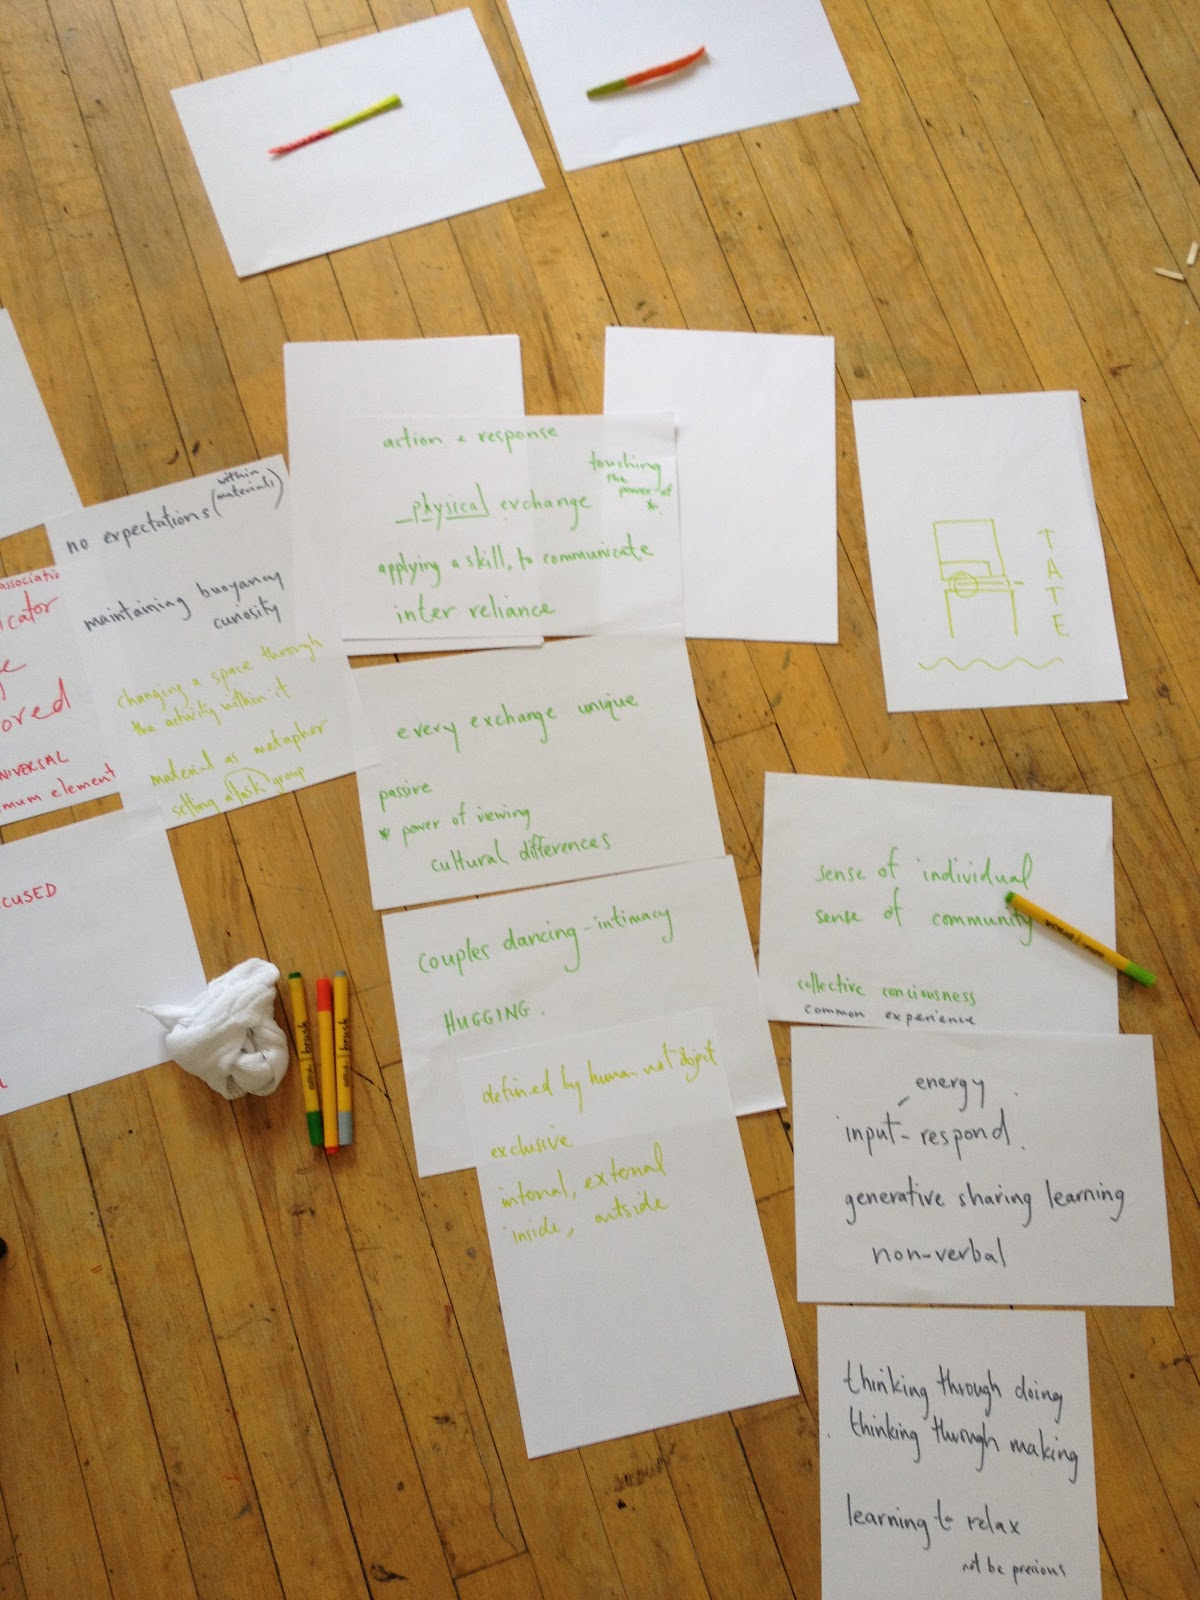 no expectations (within
materials)
maintaining buoyancy
curiosity
changing a space through
the activity within it
material as metaphor
setting a task group
associatio
icator
ored
NIVERSAL
mum element
CUSED
action & response
physical exchange
touching
the
power of
*
applying a skill, to communicate
inter reliance
every exchange unique
passive
* power of viewing
cultural differences
couples dancing - intimacy
HUGGING.
defined by human not object
exclusive
internal, external
inside, outside
TATE
sense of individual
sense of community
collective conciousness
common experience
energy
input - respond.
generative sharing learning
non-verbal
thinking through doing
thinking through making
learning to relax
not be precious
brush
brush